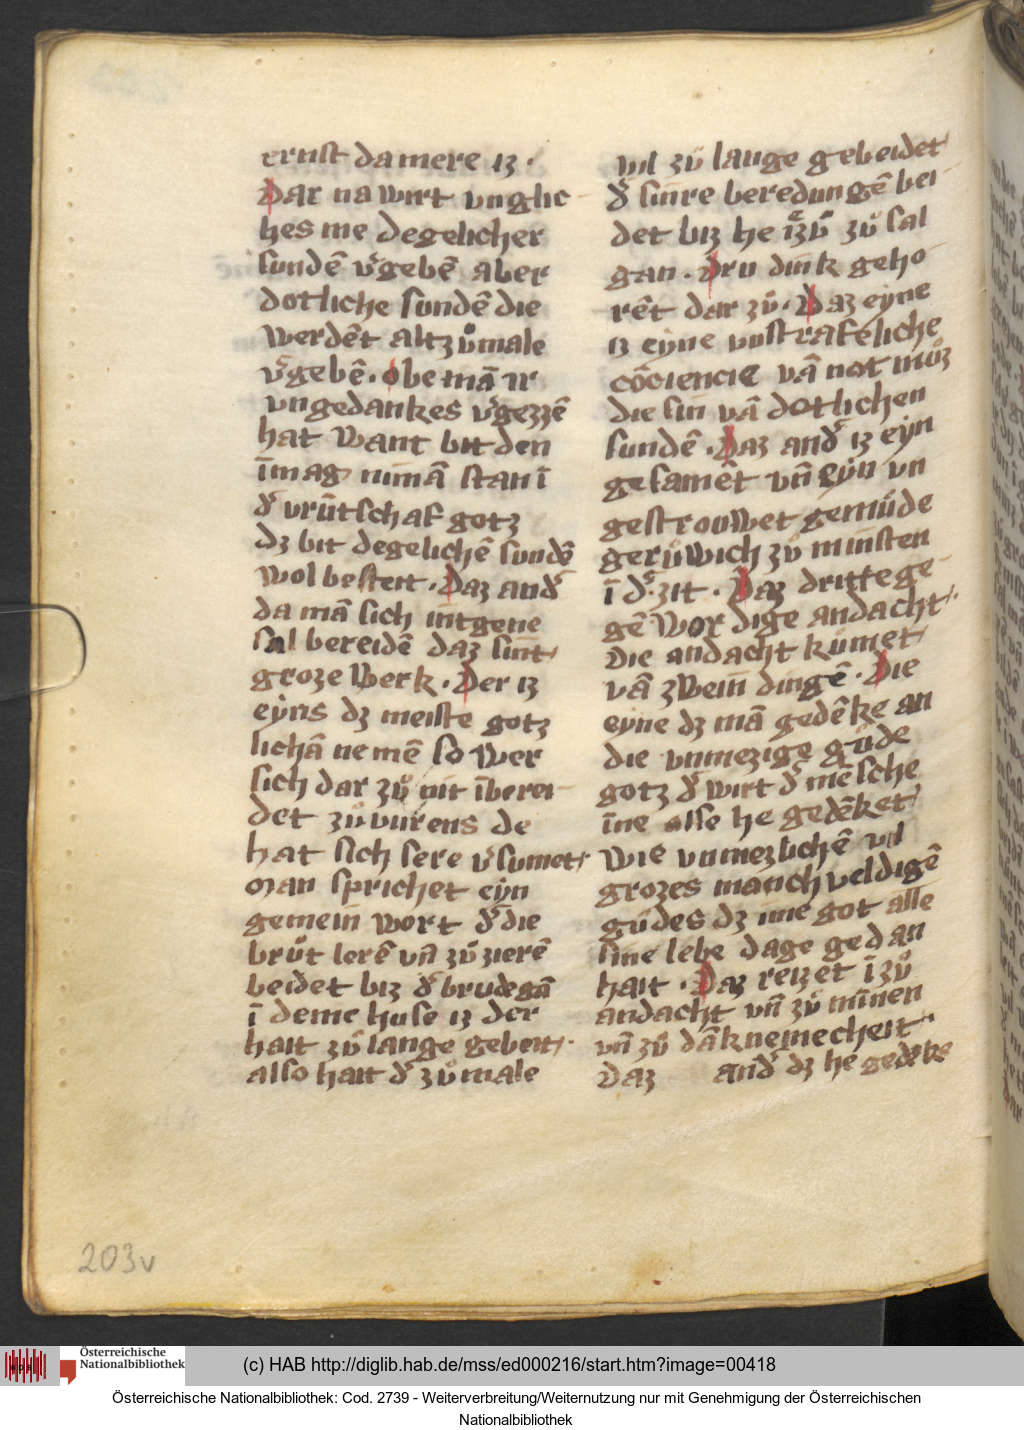 ernst da mere iz ·
Dar na wirt vnglic
hes me degelicher
sundē v᷑gebē aber
dotliche sundē die
werdēt altzůmale
v᷑gebē · obe mā ir
vngedankes v᷑gezzē
hat want bit den
īmag nimā stan ī
d᷑ vrūtschaf gotz
dz bit degelichē sundē
wol besteit · Daz and᷑
da mā sich intgene
sal bereidē daz sint
groze werk · Der iz
eyns dz meiste gotz
lichā nemē so wer
sich dar zů nit īberei
det zůvurens de
hat sich sere v᷑sumet
Man sprichet eyn
gemein wort d᷑ die
brůt lerē vn̄ zů zierē
beidet biz d᷑ brudegā
ī deme huse iz der
hait zů lange gebeit ·
also hait d᷑ zůmale
vil zů lange gebeidet
d᷑ sinre beredungē bei
det biz he īzů zů sal
gan · Dru dink geho
rēt dar zů · Daz eyne
iz eyne vnstrafeliche
cōciencie vā not můz
die sin vā dotlichen
sundē · Daz and᷑ iz eyn
gesamēt vn̄ eyn vn
gestrouwet gemůde
gerůwich zů minsten
ī d᷑ zit · Daz dritte ge
gēwordige andacht ·
die andacht kůmet
vā zwein dingē · Die
eyne dz mā gedēke an
die vnmezige gůde
gotz d᷑ wirt d᷑ mēsche
īne alse he gedēket
wie vnmezlichē vil
grozes manichveldigē
gůdes dz ime got alle
sine lebe dage gedan
hait · Daz reizet ī zů
andacht vn̄ zů minnen
vn̄ zů dāknemecheit ·
Daz and᷑ dz he gedēke
203v
Österreichische
Nationalbibliothek
(c) HAB http://diglib.hab.de/mss/ed000216/start.htm?image=00418
Österreichische Nationalbibliothek: Cod. 2739 - Weiterverbreitung/Weiternutzung nur mit Genehmigung der Österreichischen
Nationalbibliothek